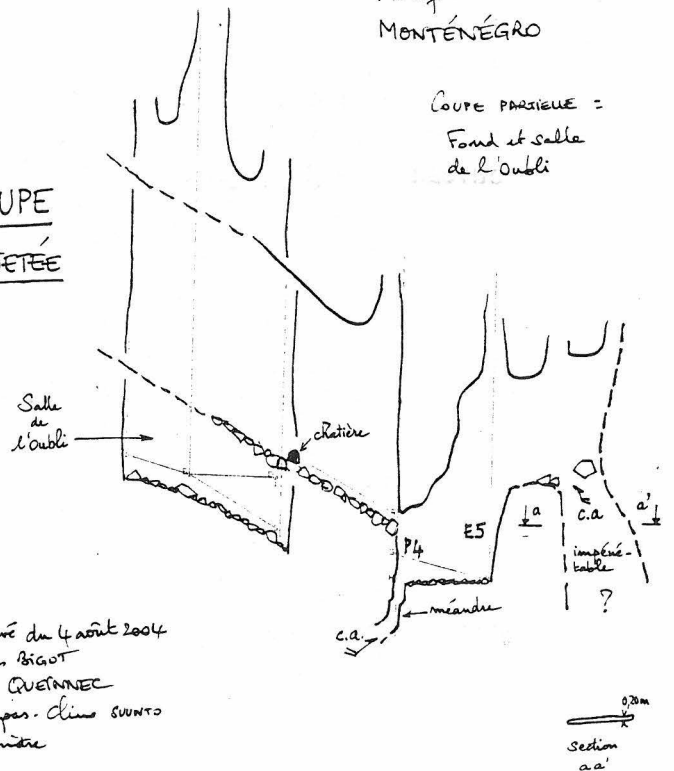 MONTÉNÉGRO
COUPE PARTIELLE =
Fond et salle
de l'Oubli
UPE
ETÉE
Salle
de
l'Oubli
chatière
P4
E5
a
a'
c.a
impéné-
trable
?
méandre
c.a.
du 4 août 2004
BIGOT
QUEINNEC
Clino SUUNTO
0,20m
Section
aa'